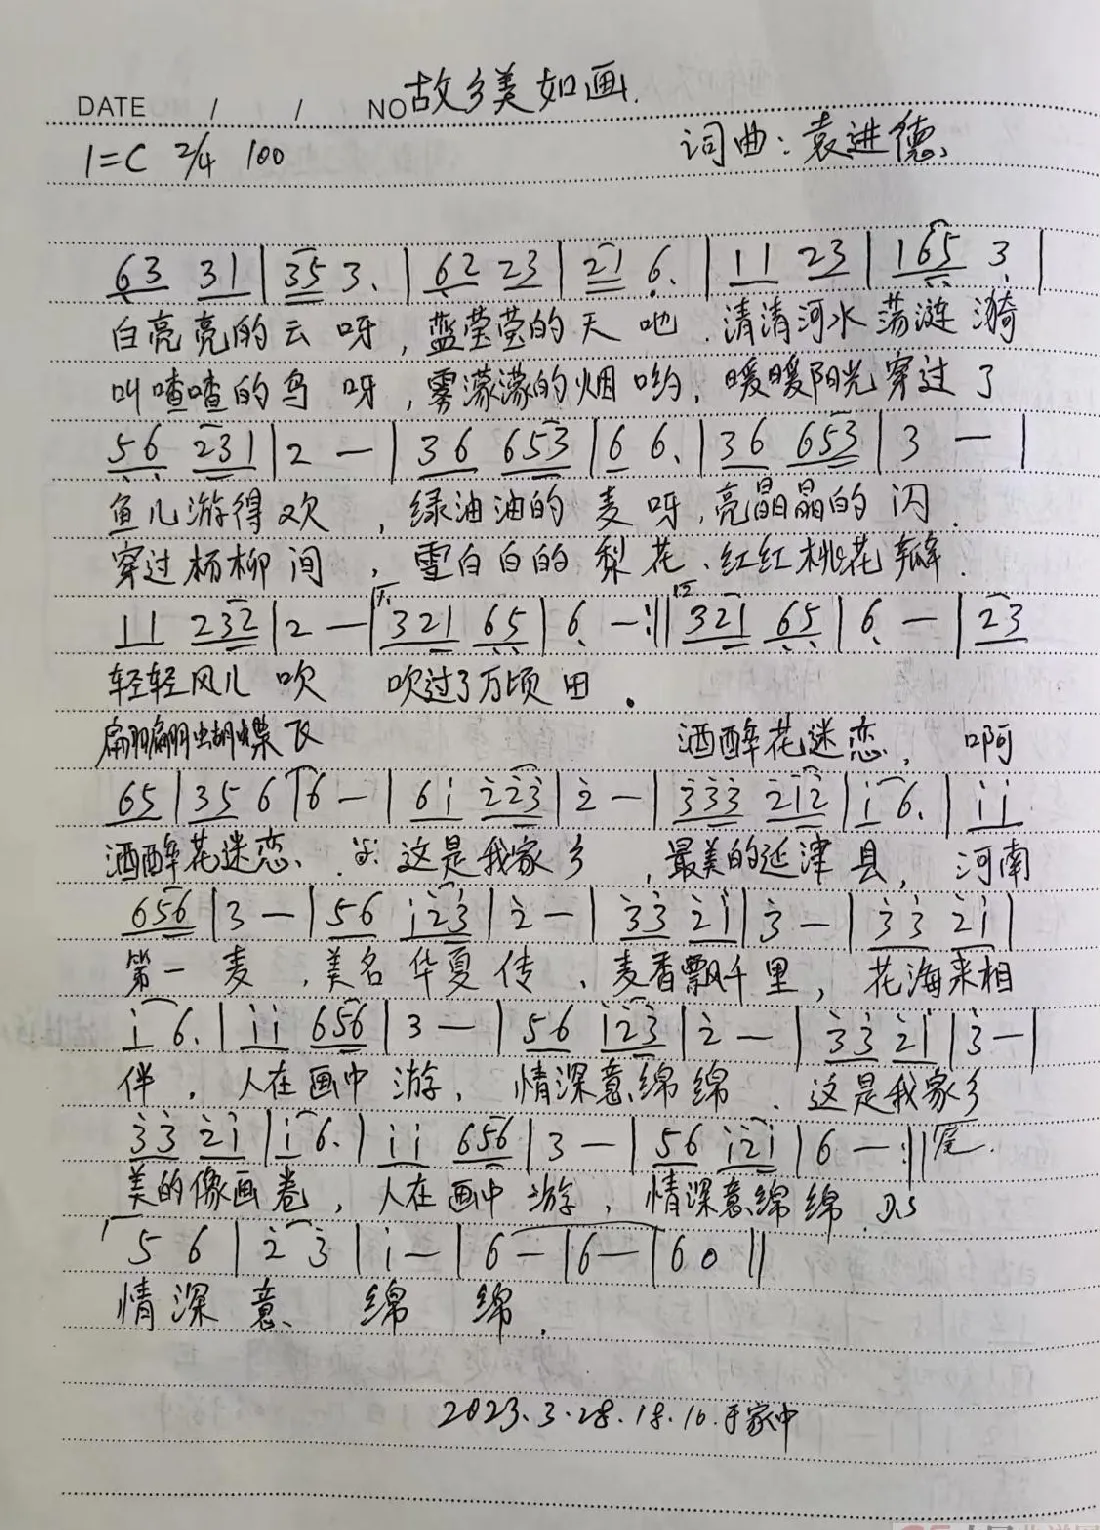 故乡美如画
DATE / / NO
1=C 2/4 100 词曲：袁进德
63 31 | 35 3. | 62 23 | 21 6. | 11 23 | 165 3 |
白亮亮的云呀，蓝莹莹的天吔．清清河水荡涟漪
叫喳喳的鸟呀，雾濛濛的烟哟，暖暖阳光穿过了
56 231 | 2 — | 36 653 | 6 6. | 36 653 | 3 — |
鱼儿游得欢，绿油油的麦呀，亮晶晶的闪．
穿过杨柳间，雪白白的梨花、红红桃花瓣．
11 232 | 2 — | 1. 321 65 | 6 — :|| 2. 321 65 | 6 — | 23
轻轻风儿吹 吹过了万顷田．
翩翩蝴蝶飞 洒醉花迷恋，啊
65 | 35 6 | 6 — | 6i 223 | 2 — | 333 212 | i 6. | ii
洒醉花迷恋、 这是我家乡，最美的延津县，河南
656 | 3 — | 56 i23 | 2 — | 33 2i | 3 — | 33 2i |
第一麦，美名华夏传、麦香飘千里，花海来相
i 6. | ii 656 | 3 — | 56 i23 | 2 — | 33 2i | 3 — |
伴，人在画中游，情深意绵绵．这是我家乡
33 2i | i 6. | ii 656 | 3 — | 56 i2i | 6 — :|| 尾.
美的像画卷，人在画中游，情深意绵绵． D.S
5 6 | 2 3 | i — | 6 — | 6 — | 6 0 ||
情深意、绵绵．
2023.3.28.18.10.于家中